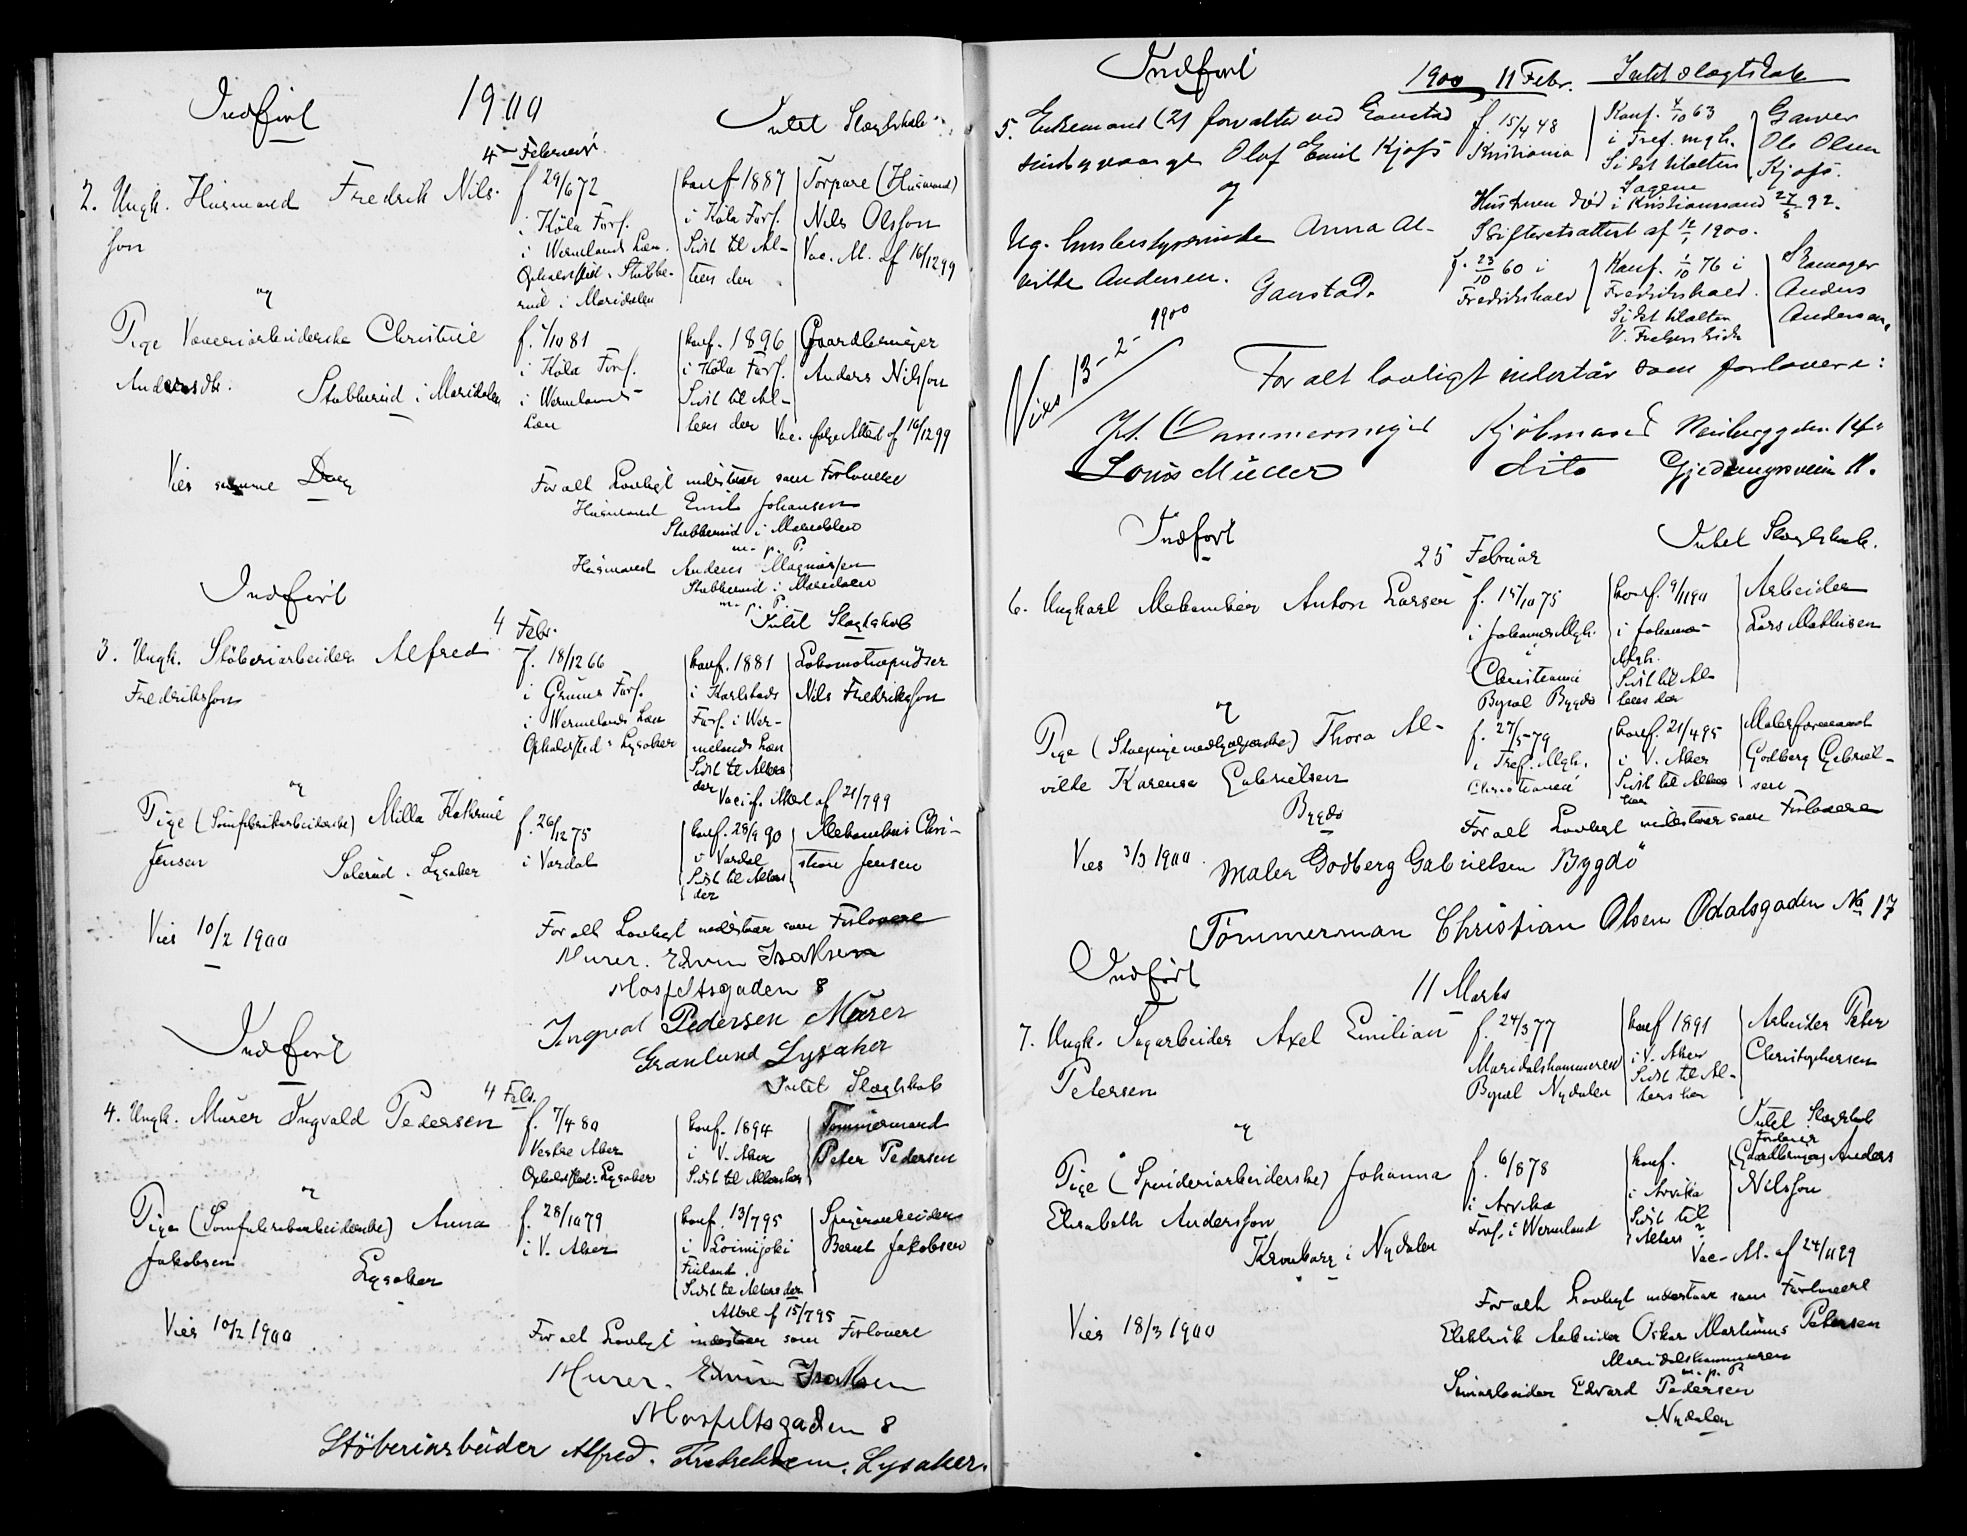 Indført
1900
Intet Slægtskab
4 Februar
2. Ungk. Husmand Fredrik Nils-
son
f 29/6 72
i Köla Fors.
i Wermlands Læn
Opholdsted: Stubbe-
rud i Maridalen
konf 1887
i Köla Fors.
Sidst til Al-
ters der
Torpare (Husmand)
Nils Olsson
Vac. A. af 16/12 99
og
Pige Væveriarbeiderske Christine
Andersdtr. Stubberud i Maridalen
f. 1/10 81
i Köla Fors.
i Wermlands
Læn
konf. 1896
i Köla Fors.
Sidst til Al-
ters der
Gaardbruger
Anders Nilsson
Vac. Attest af 16/12 99
Vies samme Dag
For alt Lovligt indestaar som Forlovere
Husmand Emil Johansen
Stubberud i Maridalen
m. p. P.
Husmand Anders Magnussen
Stubberud i Maridalen
m. p. P.
Indført
4 Febr.
Intet Slægtskab
3. Ungk. Støberiarbeider Alfred
Fredriksson
f. 18/12 66
i Grums Fors.
i Wermlands Læn
Opholdsted: Lysaker
konf. 1881
i Karlstads
Fors. i Wer-
melands Læn
Sidst til Alters
der
Lokomotivpudser
Nils Fredriksson
Attest af 21/7 99
og
Pige (Sømfabrikarbeiderske) Milla Kathrine
Jensen Solerud. Lysaker
f. 26/12 75
i Vardal
konf. 28/9 90
i Vardal
Sidst til Alters
der
Christian Jensen
Vies 10/2 1900
For alt Lovligt indestaar som Forlovere
Murer. Edvin Isaksen
Mosfeltsgaden 8
Ingval Pedersen Murer
Granlund Lysaker
Indført
Intet Slægtskab
4 Feb.
4. Ungk. Murer Ingvald Pedersen
f. 7/4 80
Vestre Aker
Opholdsted: Lysaker
konf. 1894
i V. Aker
Sidst til Alters her
Tømmermand
Peter Pedersen
og
Pige (Sømfabrikarbeiderske) Anna
Jakobsen Lysaker
f. 28/10 79
i V. Aker
konf. 13/7 95
i Loimijoki
Finland
Sidst til Alters der
Attest af 15/7 95
Bernt Jakobsen
Vies 10/2 1900
For alt Lovligt indestaar som Forlovere
Murer. Edvin Isaksen
Mosfeltsgaden 8
Stöberiarbeider Alfred. Lysaker.
Indført
1900 11 Febr. Intet slægtskab
5. Enkemand (2) forvalter ved Gaustad
sindsygeasyl Olof Emil Kjøfs
f. 15/4 48
Kristiania
Konf. 4/10 63
i Tref. mgh.
Sidst til alters
Sagene
Garver
Ole Olsen
Kjøfs.
Hustruen død i Kristiansand 27/5 92.
Skifteretsattest af 12/1 1900.
og
Ug. husbestyrerinde Anna Al-
vilde Andersen. Gaustad.
f. 23/10 60 i
Fredrikshald
Konf. 1/10 76 i
Fredrikshald.
Sidst til alters
V. Frederikstad
Skomager
Anders
Andersen.
Viet 13-2-1900
For alt lovligt indestår som forlovere:
Kjöbmand
Louis Müller dito 11.
Indført
25 Februar
Intet Slægtskab.
6. Ungkarl Mekaniker Anton Larsen
f. 15/10 75
i Johannes Mgh.
i
Christiania
Bopæl Bygdø
konf. 9/11 90
i Johannes
Mgh.
Sidst til Al-
ters der
Arbeider
Lars Mathisen
og
Pige Thora Al-
vilde Karense Gabrielsen
Bygdø
f. 27/5 79
i Tref. Mgh.
Christiania
konf. 21/4 95
i V. Aker
Sidst til Alters
her
Malerformand
Godberg Gabriel-
sen
For alt Lovligt indestaar som Forlovere
Vies 3/3 1900
Maler Godberg Gabrielsen Bygdö
Tömmerman Christian Olsen Odalsgaden No 17
Indført
11 Marts
7. Ungk. Sagarbeider Axel Emilian
Petersen
f. 24/3 77
Maridalshammeren
Bopæl Nydalen
konf 1891
i V. Aker
Sidst til Al-
ters her
Arbeider Peter
Christophersen
Intet Slægtskab
og
Pige (Spinderiarbeiderske) Johanna
Elisabeth Andersson
Kronborg i Nydalen
f. 6/8 78
i Arvika
Fors. i Wermland
konf.
i Arvika
Sidst til
Alters ?
Forhener
Gaardbruger Anders
Nilsson
Vac. A. af 24/11 99
For alt Lovligt indestaar som Forlovere
Vies 18/3 1900
Elektrisk Arbeider Oskar Martinius Petersen
Maridalshammeren
m. p. P
Edvard Pedersen
Nydalen